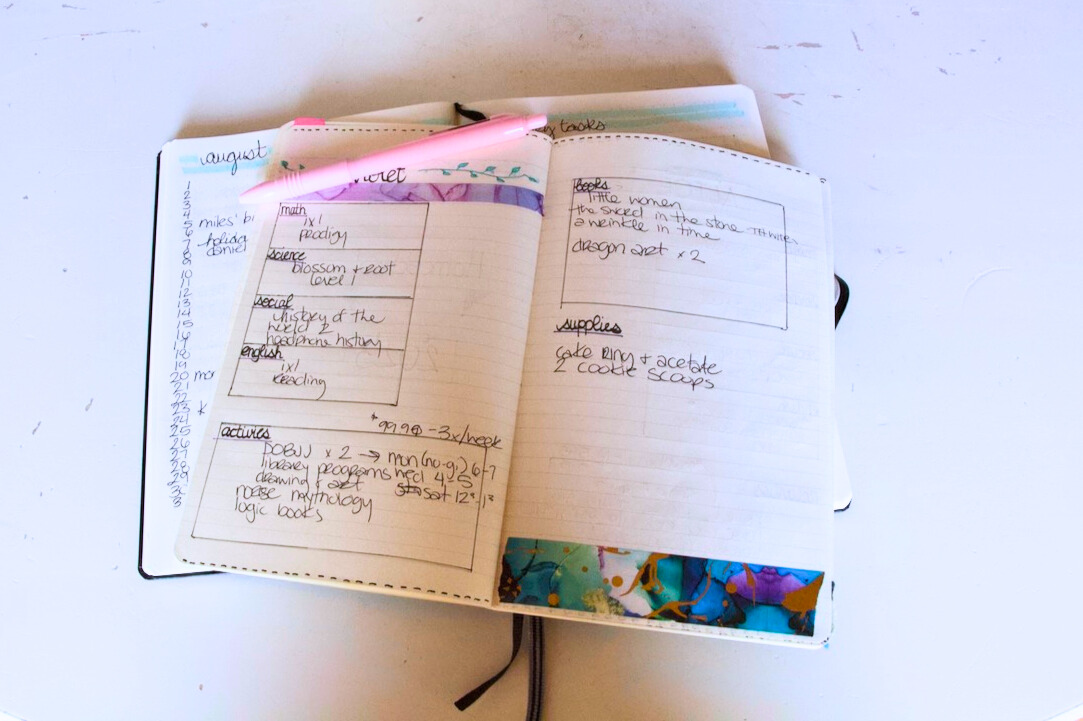 august
1
2
3
4
5 miles' bi
6
7 holiday
8 daniel
9
10
11
12
13
14
15
16
17
18
19
20 mor
21
22
23 k
24
25
26
27
28
29
tasks
math
ixl
prodigy
science
blossom + root
level 1
social
history of the
world 2
headphone history
english
ixl
reading
$99.90 - 3x/week
x 2 → mon (no-gi) 6-7
library programs wed 4-5
drawing + art sat
norse mythology
logic books
books
little women
the sword in the stone
a wrinkle in time
dragon art x 2
supplies
cake ring + acetate
2 cookie scoops